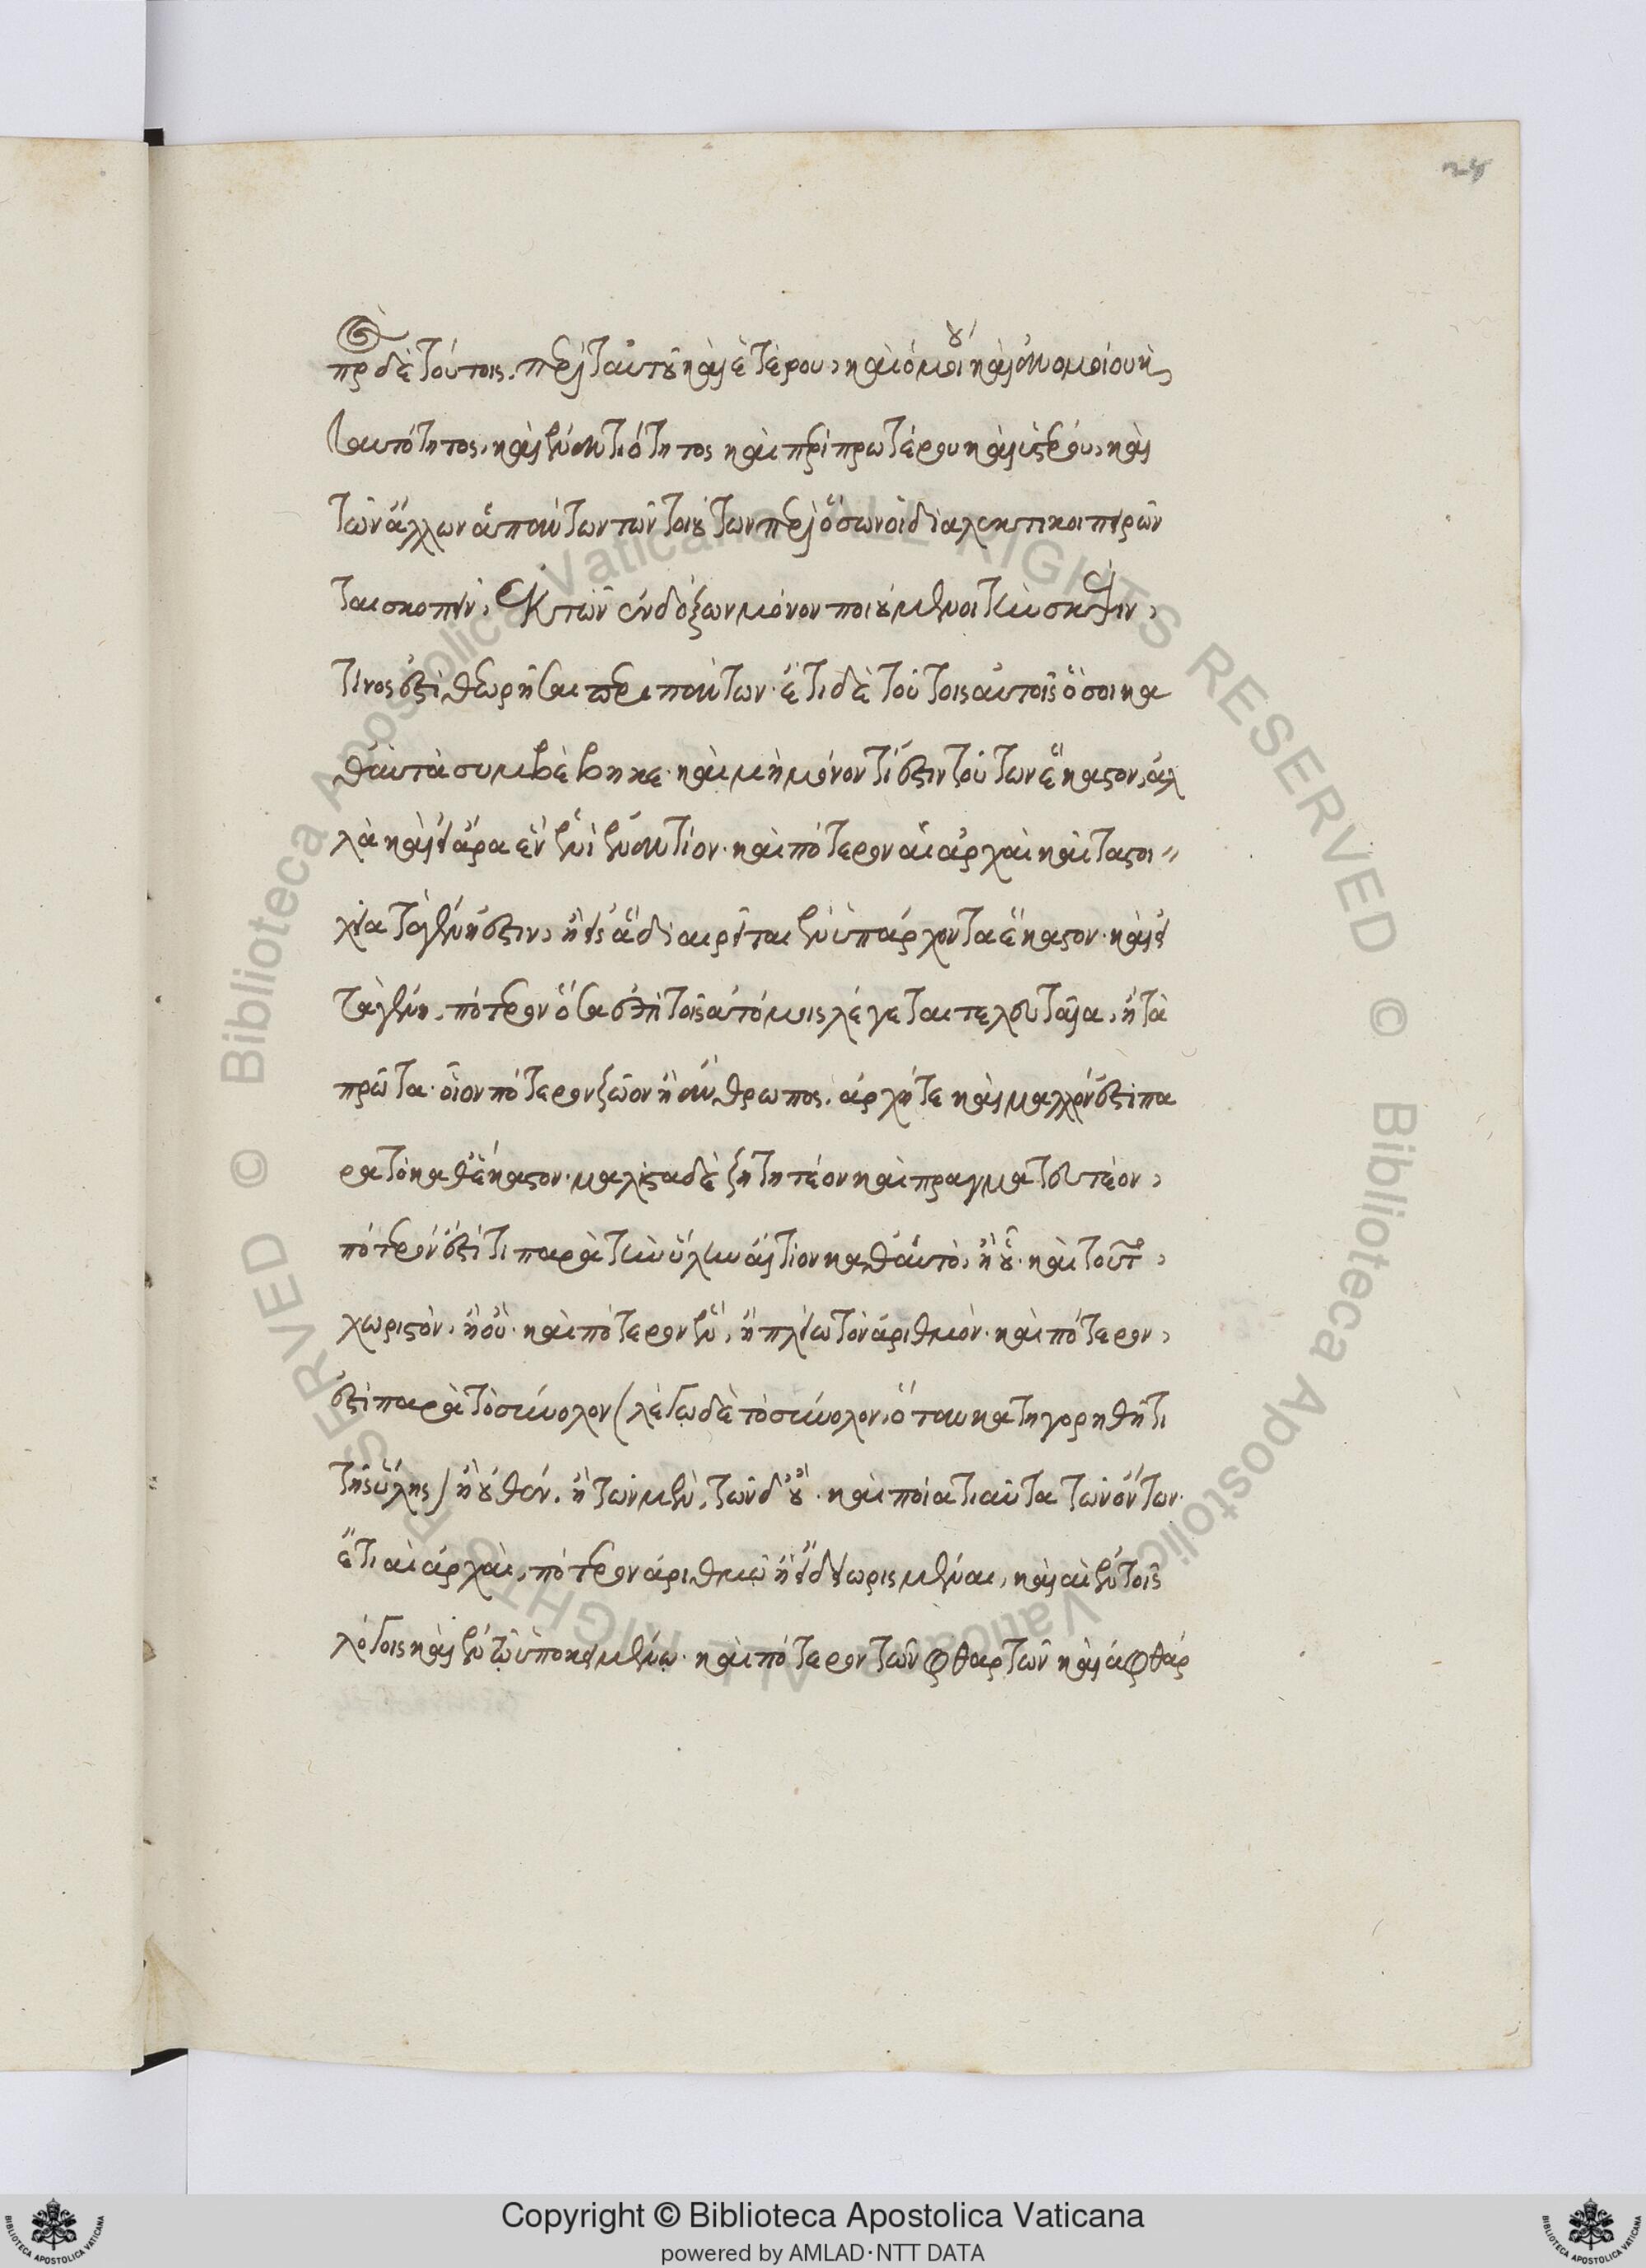 πρὸς δὲ τούτοις, περὶ ταυτοῦ καὶ ἑτέρου, καὶ ὁμοίου καὶ ἀνομοίου καὶ
ταυτότητος, καὶ ἐναντιότητος καὶ περὶ προτέρου καὶ ὑστέρου, καὶ
τῶν ἄλλων ἁπάντων τῶν τοιούτων περὶ ὅσων οἱ διαλεκτικοὶ πειρῶν
ται σκοπεῖν, ἐκ τῶν ἐνδόξων μόνον ποιούμενοι τὴν σκέψιν,
τίνος ἐστὶ θεωρῆσαι περὶ πάντων. ἔτι δὲ τούτοις αὐτοῖς ὅσοι κα
θ' αὑτὰ συμβέβηκε. καὶ μὴ μόνον τί ἐστιν τούτων ἕκαστον, ἀλ
λὰ καὶ εἰ ἄρα ἓν ἑνὶ ἐναντίον. καὶ πότερον αἱ ἀρχαὶ καὶ τὰ στοι
χεῖα τὰ γένη ἐστιν, ἢ εἰς ἃ διαιρεῖται ἐνυπάρχοντα ἕκαστον. καὶ εἰ
τὰ γένη, πότερον ὅσα ἐπὶ τοῖς ἀτόμοις λέγεται τελευταῖα, ἢ τὰ
πρῶτα. οἷον πότερον ζῶον ἢ ἄνθρωπος, ἀρχή τε καὶ μᾶλλον ἐστὶ πα
ρὰ τὸ καθ' ἕκαστον. μάλιστα δὲ ζητητέον καὶ πραγματευτέον,
πότερον ἐστί τι παρὰ τὴν ὕλην αἴτιον καθ' αὑτὸ, ἢ οὔ. καὶ τοῦτο,
χωριστὸν, ἢ οὔ. καὶ πότερον ἓν, ἢ πλείω τὸν ἀριθμόν. καὶ πότερον,
ἐστὶ παρὰ τὸ σύνολον (λέγω δὲ τὸ σύνολον, ὅταν κατηγορηθῇ τι
τῆς ὕλης) ἢ οὐθέν. ἢ τῶν μὲν, τῶν δ' οὔ. καὶ ποῖα τιαῦτα τῶν ὄντων.
ἔτι αἱ ἀρχαὶ, πότερον ἀριθμῷ ἢ εἴδει ὡρισμέναι, καὶ αἱ ἐν τοῖς
λόγοις καὶ ἐν τῷ ὑποκειμένῳ. καὶ πότερον τῶν φθαρτῶν καὶ ἀφθάρ
Copyright © Biblioteca Apostolica Vaticana
powered by AMLAD·NTT DATA